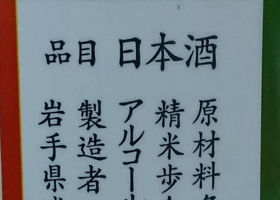 品目 日本酒
原材料名
精米歩合
アルコール
製造者
岩手県